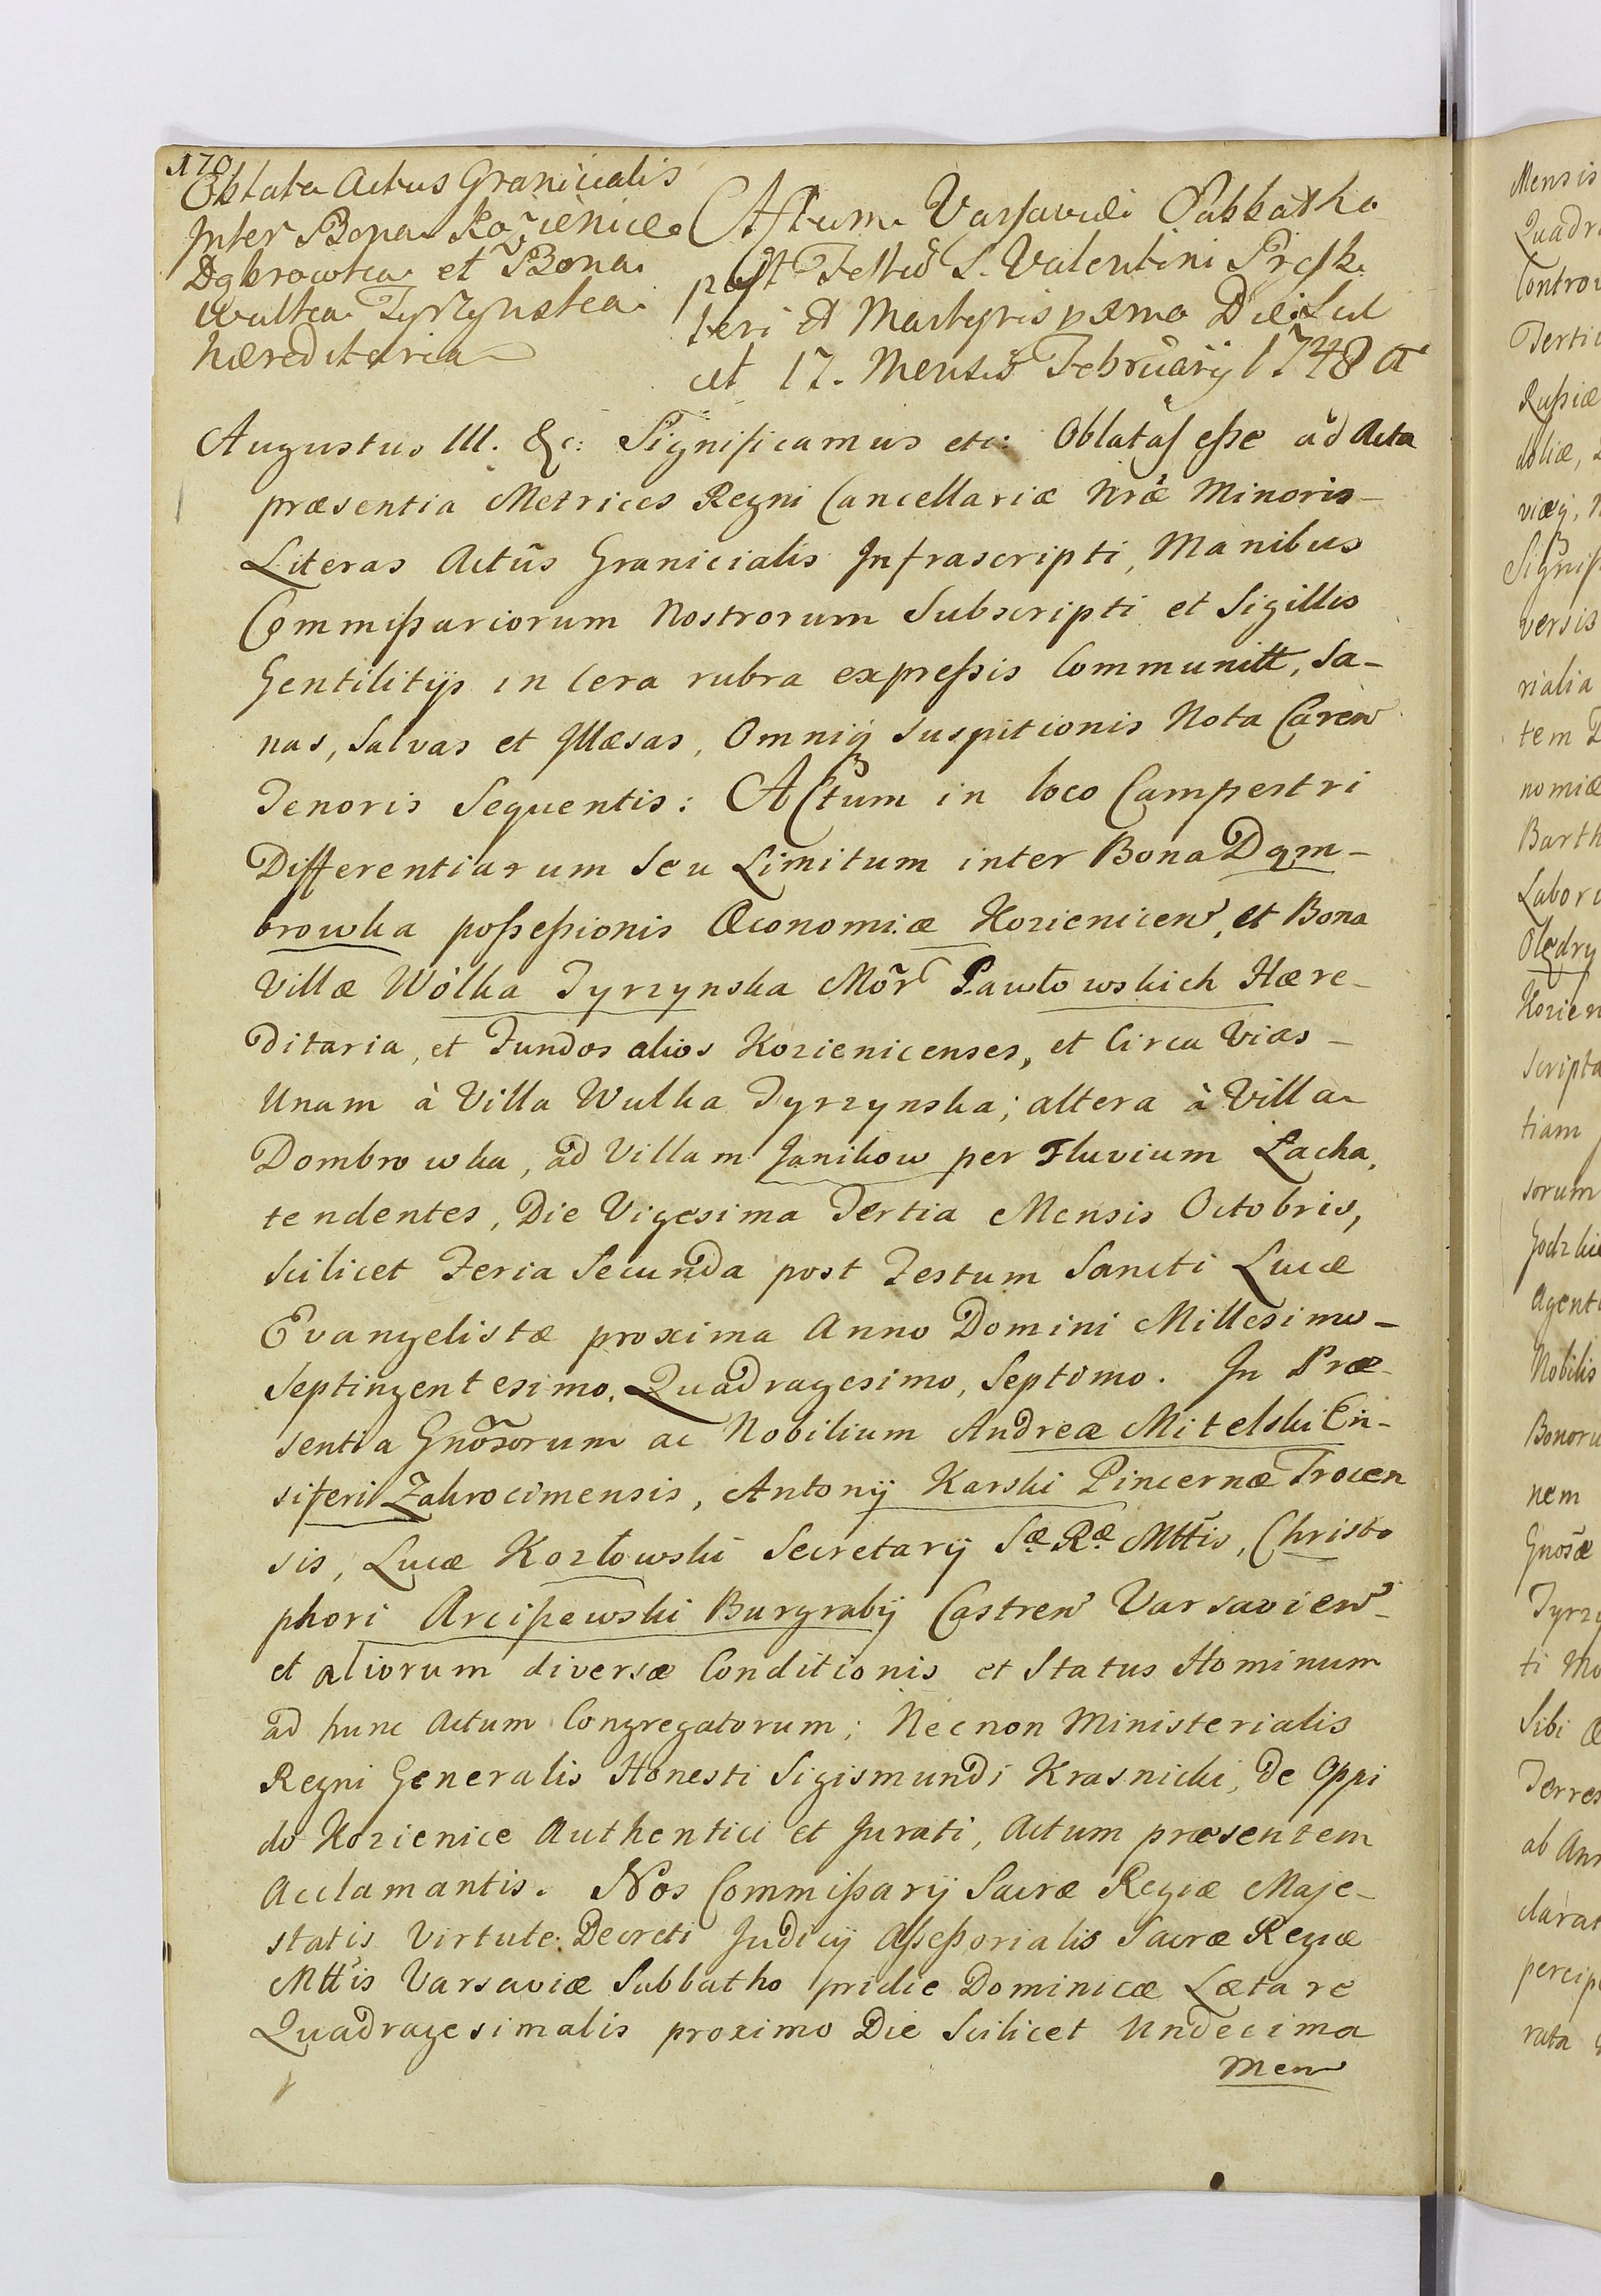 170
Oblata Actus Granicialis
Inter Bona Kozienice
Dąbrowka et Bona
Wulka Tyrzynska
hæreditaria
Actum Varsaviæ Sabbatho
post Festũ S. Valentini Presb.
teri et Martyris pximo Die scil
cet 17. Mensis Februarij 1748 a
Augustus III. &c: Significamus etc: Oblatas eſse ad Acta
præsentia Metrices Regni Cancellariæ Nræ Minoris
Literas Actũs Granicialis Infrascripti, Manibus
Commiſsariorum Nostrorum Subscripti et Sigillis
Gentilitijs in Cera rubra expreſsis Communitt, Sa-
nas, Salvas et Illæsas, Omniq; Suspitionis Nota Caren
Tenoris Sequentis: Actum in loco Campestri
Differentiarum Seu Limitum inter Bona Dąm-
browka poſseſsionis Œconomiæ Kozienicen, et Bona
Villæ Wólka Tyrzynska Mõr Pawłowskich Hære-
ditaria, et Fundos alios Kozienicenses, et Circa Vias
Unam à Villa Wulka Tyrzynska; altera à Villa
Dombrowka, ad Villam Janikow per Fluvium Łacha,
tendentes, Die Vigesima Tertia Mensis Octobris,
Scilicet Feria Secunda post Festum Sancti Lucæ
Evangelistæ proxima Anno Domini Millesimo
Septingentesimo, Quadragesimo, Septimo. In Præ-
sentia Gnõsorum ac Nobilium Andreæ Mitelski En-
siferi Zakrocimensis, Antonij Karski Pincernæ Trocen
sis, Lucæ Kozłowski Secretarij Sæ Ræ Mttis, Christo
phori Arciszewski Burgrabij Castren Varsavien
et aliorum diversæ Conditionis et Status Hominum
ad hunc Actum Congregatorum; Necnon Ministerialis
Regni Generalis Honesti Sigismundi Krasnicki, de Oppi
do Kozienice Authentici et Jurati, Actum præsentem
Acclamantis. Nos Commiſsarij Sacræ Regiæ Maje-
statis Virtute Decreti Judicij Aſseſsorialis Sacræ Regiæ
Mttis Varsaviæ Sabbatho pridie Dominicæ Lætare
Quadragesimalis proximo Die Scilicet Undecima
Men
Mensis
Quadr
Controv
Tertic
Ruſsiæ
doliæ,
viæq,
Signif
versis
rialia
tem
nomiæ
Barth
Labor
Olędry
Kozien
Scripta
tiam
sorum
Agent
Nobilis
Bonoru
nem
Gnosæ
Tyrzy
ti Mo
Sibi
Terres
ab Ann
clarat
percip
rata